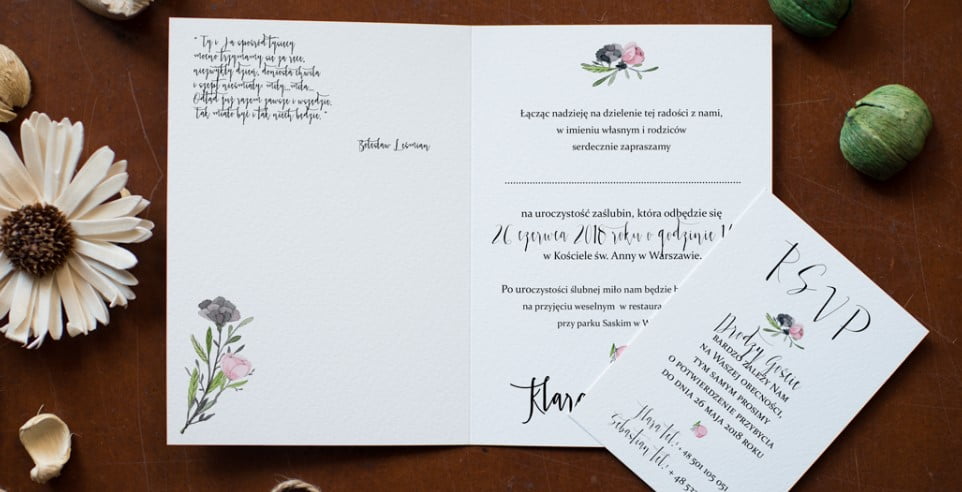 " Ty i Ja opośród tysięcy
mocno trzymamy się za ręce,
niezwykły dzień, doniosła chwila
i szept nieśmiały: miły, miła...
Odtąd już razem zawsze i wszędzie,
tak miało być i tak niech będzie. "
Bolesław Leśmian
Łącząc nadzieję na dzielenie tej radości z nami,
w imieniu własnym i rodziców
serdecznie zapraszamy
na uroczystość zaślubin, która odbędzie się
26 czerwca 2018 roku o godzinie
w Kościele św. Anny w Warszawie.
Po uroczystości ślubnej miło nam będzie
na przyjęciu weselnym w
przy parku Saskim w
Klara
RSVP
Drodzy Goście
BARDZO ZALEŻY NAM
NA WASZEJ OBECNOŚCI,
TYM SAMYM PROSIMY
O POTWIERDZENIE PRZYBYCIA
DO DNIA 26 MAJA 2018 ROKU
Klara tel.: +48 501 105 051
Sebastian tel.: +48